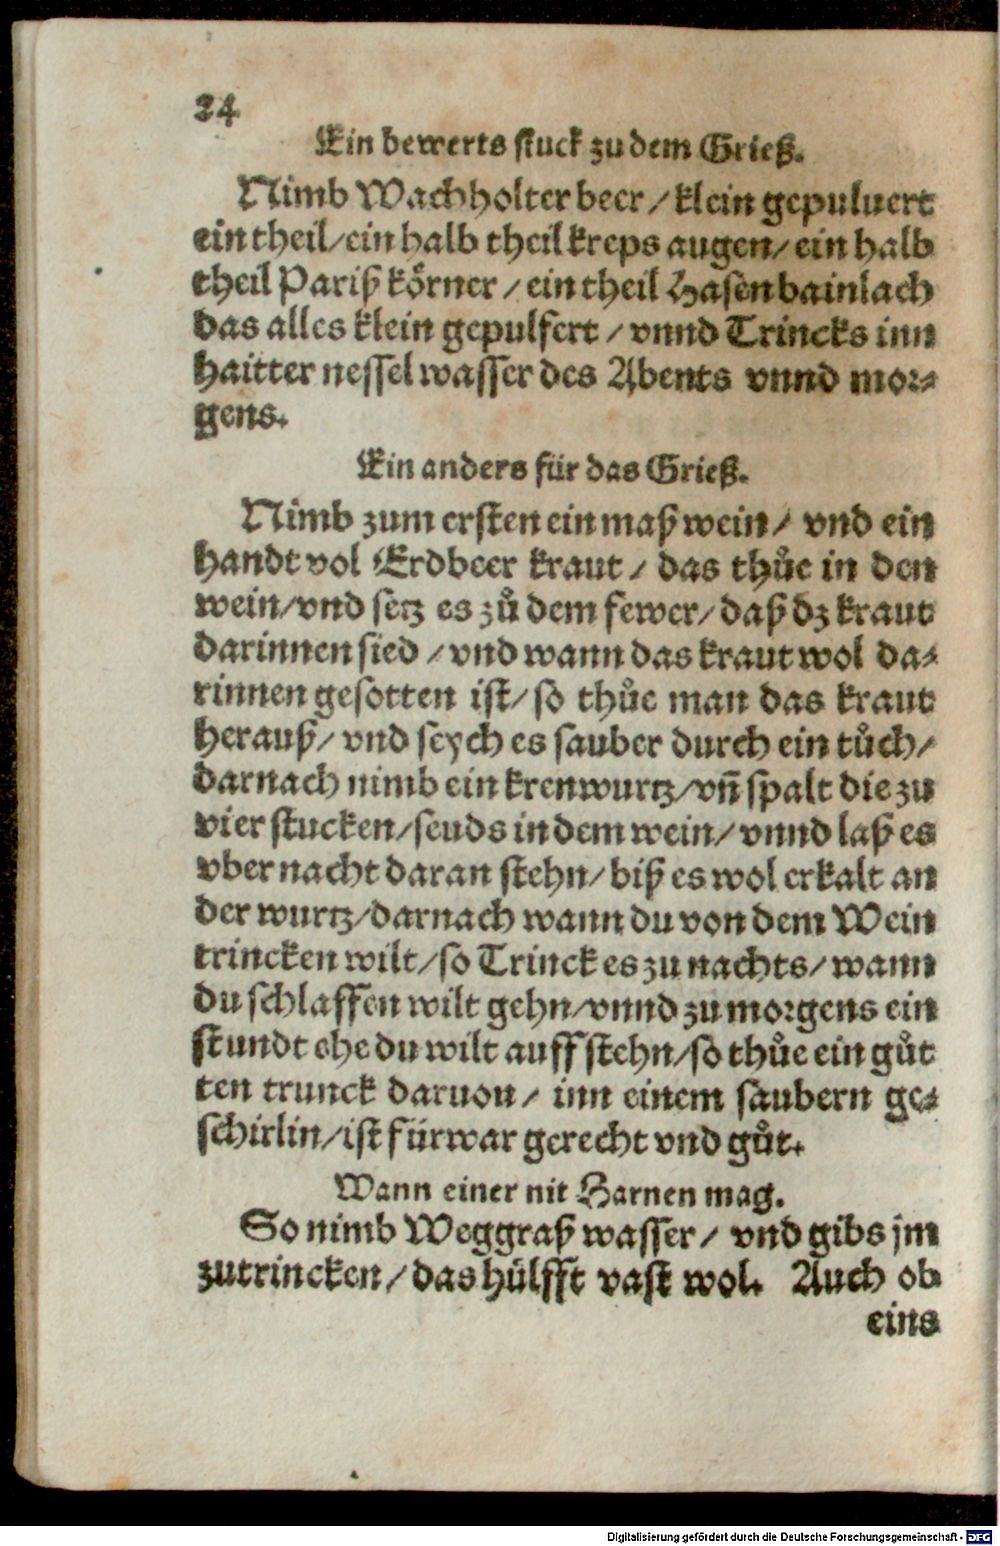 24
Ein bewerts stuck zu dem Grieß.
Nimb Wachholter beer / klein gepuluert
ein theil / ein halb theil kreps augen / ein halb
theil Pariß körner / ein theil Hasen bainlach
das alles klein gepulfert / vnnd Trincks inn
haitter nessel wasser des Abents vnnd mor⸗
gens.
Ein anders für das Grieß.
Nimb zum ersten ein maß wein / vnd ein
handt vol Erdbeer kraut / das thůe in den
wein / vnd setz es zů dem fewer / daß dz kraut
darinnen sied / vnd wann das kraut wol da⸗
rinnen gesotten ist / so thůe man das kraut
herauß / vnd seych es sauber durch ein tůch /
darnach nimb ein krenwurtz / vñ spalt die zu
vier stucken / seuds in dem wein / vnnd laß es
vber nacht daran stehn / biß es wol erkalt an
der wurtz / darnach wann du von dem Wein
trincken wilt / so Trinck es zu nachts / wann
du schlaffen wilt gehn / vnnd zu morgens ein
stundt ehe du wilt auff stehn / so thůe ein gůt
ten trunck daruon / inn einem saubern ge⸗
schirlin / ist fürwar gerecht vnd gůt.
Wann einer nit Harnen mag.
So nimb Weggraß wasser / vnd gibs jm
zutrincken / das hülfft vast wol. Auch ob
eins
Digitalisierung gefördert durch die Deutsche Forschungsgemeinschaft - DFG